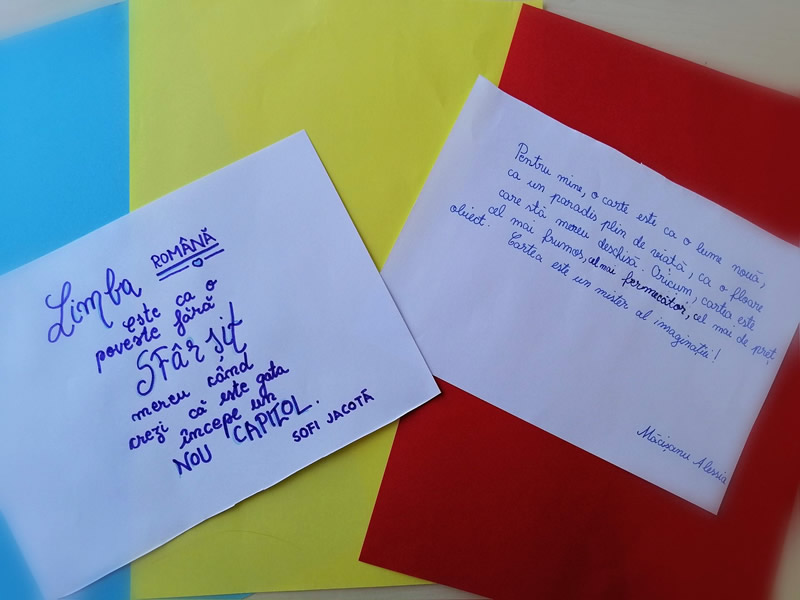 Limba ROMÂNĂ
este ca o
poveste fără
SFârșit
mereu când
crezi că este gata
începe un
NOU CAPITOL.
SOFI JACOTĂ
Pentru mine, o carte este ca o lume nouă,
ca un paradis plin de viață, ca o floare
care stă mereu deschisă. Oricum, cartea este
cel mai frumos, cel mai fermecător, cel mai de preț
obiect. Cartea este un mister al imaginației!
Măcișanu Alessia